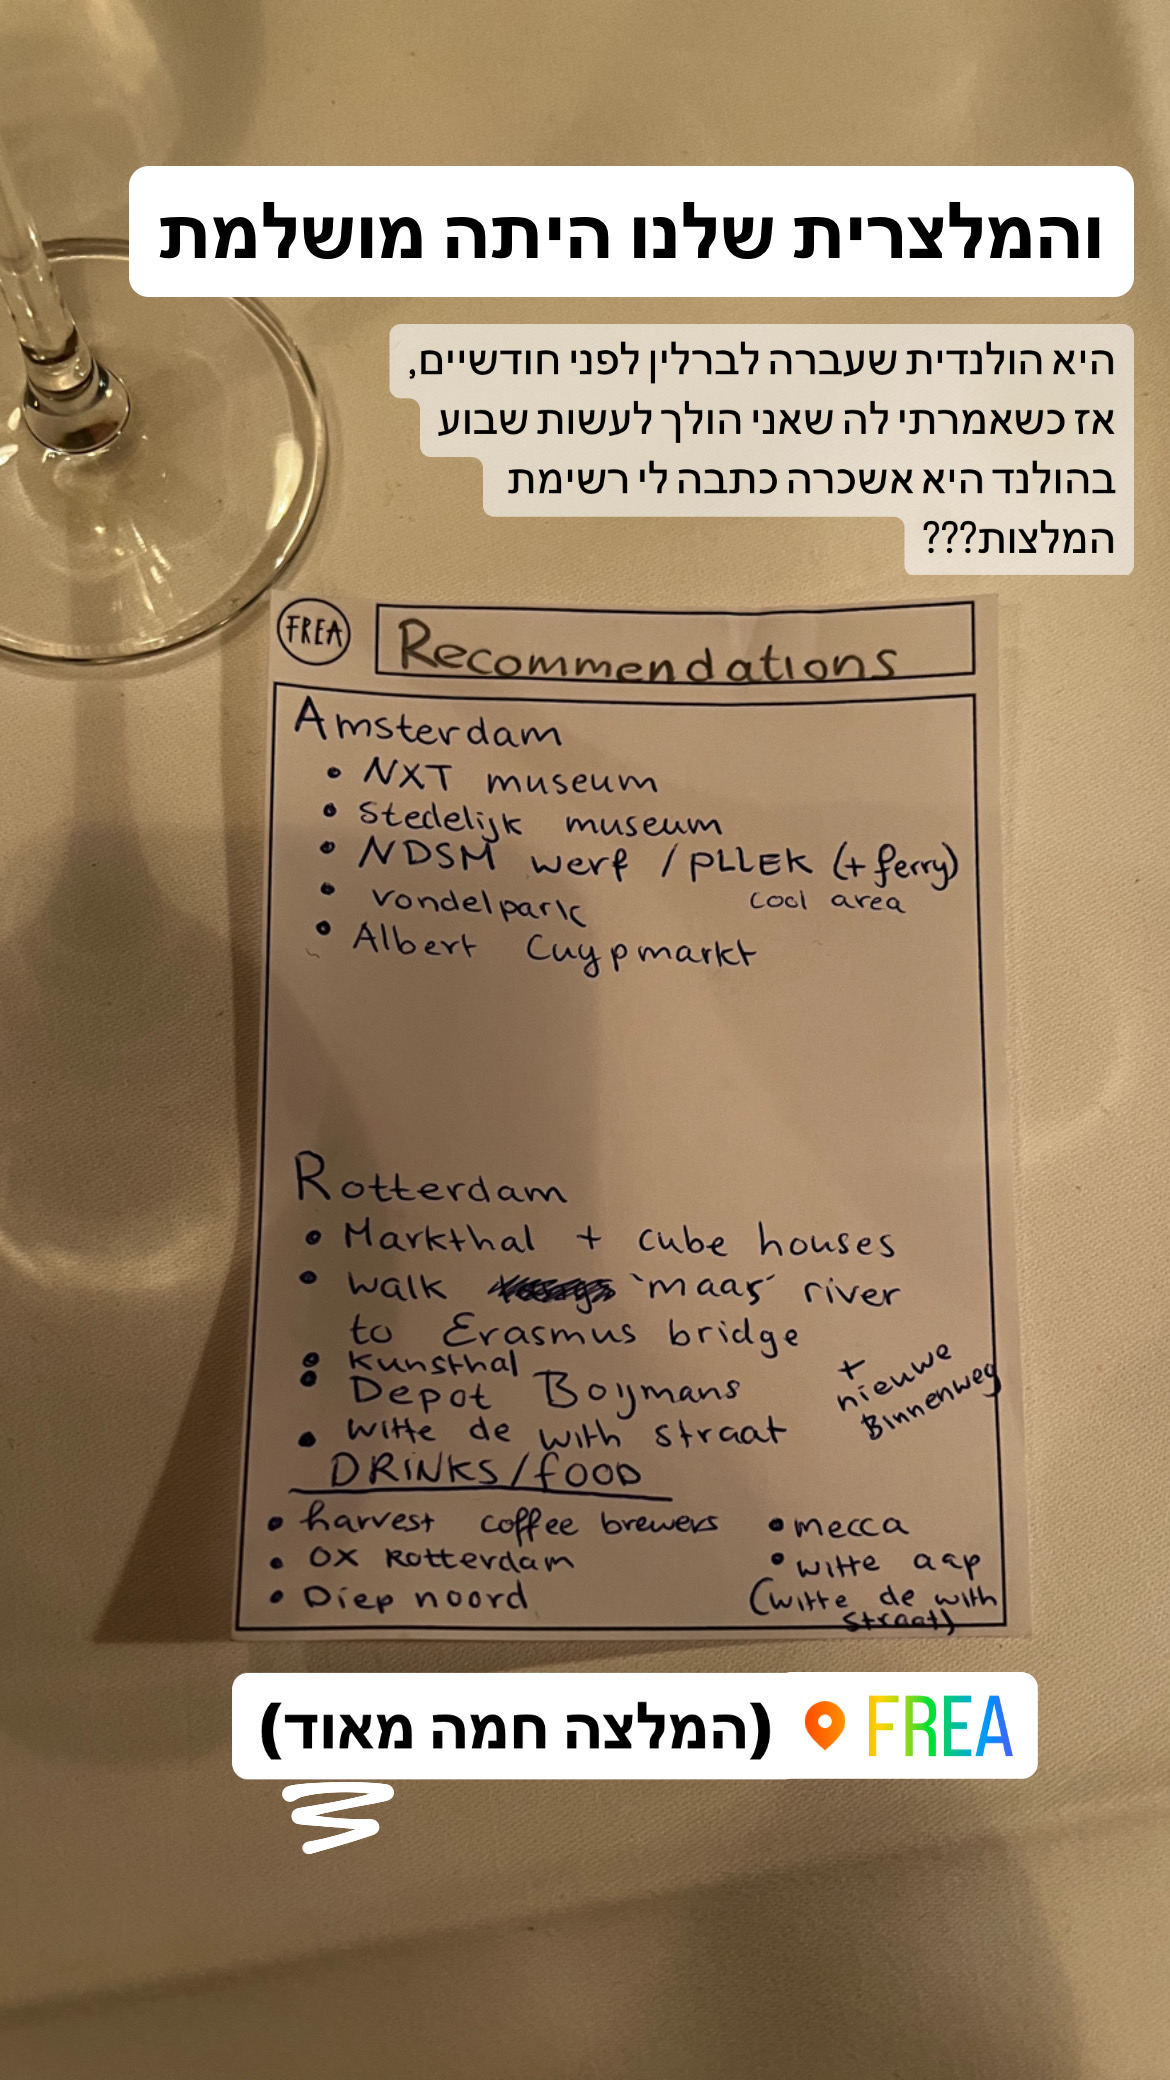 והמלצרית שלנו היתה מושלמת
היא הולנדית שעברה לברלין לפני חודשיים,
אז כשאמרתי לה שאני הולך לעשות שבוע
בהולנד היא אשכרה כתבה לי רשימת
המלצות???
FREA
Recommendations
Amsterdam
• NXT museum
• Stedelijk museum
• NDSM werf / PLLEK (+ ferry)
cool area
• vondelpark
• Albert Cuypmarkt
Rotterdam
• Markthal + cube houses
• walk 'maas' river
to Erasmus bridge
• Kunsthal
• Depot Boijmans
• Witte de with straat
+
nieuwe
Binnenweg
DRINKS/FOOD
• harvest coffee brewers
• OX Rotterdam
• Diep noord
• mecca
• witte aap
(witte de with
straat)
FREA (המלצה חמה מאוד)